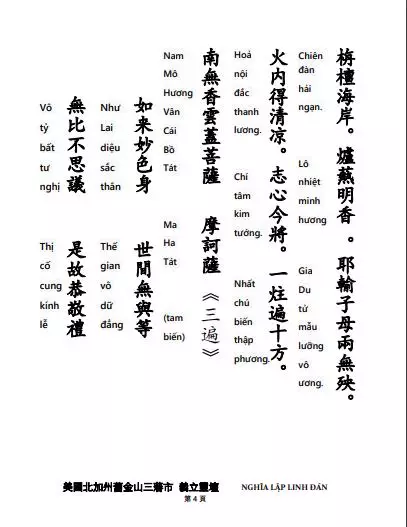 栴檀海岸。爐爇明香。耶輸子母兩無殃。
Chiên đàn hải ngạn. Lô nhiệt minh hương Gia Du tử mẫu lưỡng vô ương.
火内得清凉。志心今將。一炷遍十方。
Hoả nội đắc thanh lương. Chí tâm kim tướng. Nhất chú biến thập phương.
南無香雲蓋菩薩 摩訶薩《三遍》
Nam Mô Hương Vân Cái Bồ Tát Ma Ha Tát (tam biến)
如来妙色身 世間無與等
Như Lai diệu sắc thân Thế gian vô dữ đẳng
無比不思議 是故恭敬禮
Vô tỷ bất tư nghị Thị cố cung kính lễ
美國北加州舊金山三藩市 義立靈壇 NGHĨA LẬP LINH ĐÁN
第 4 頁